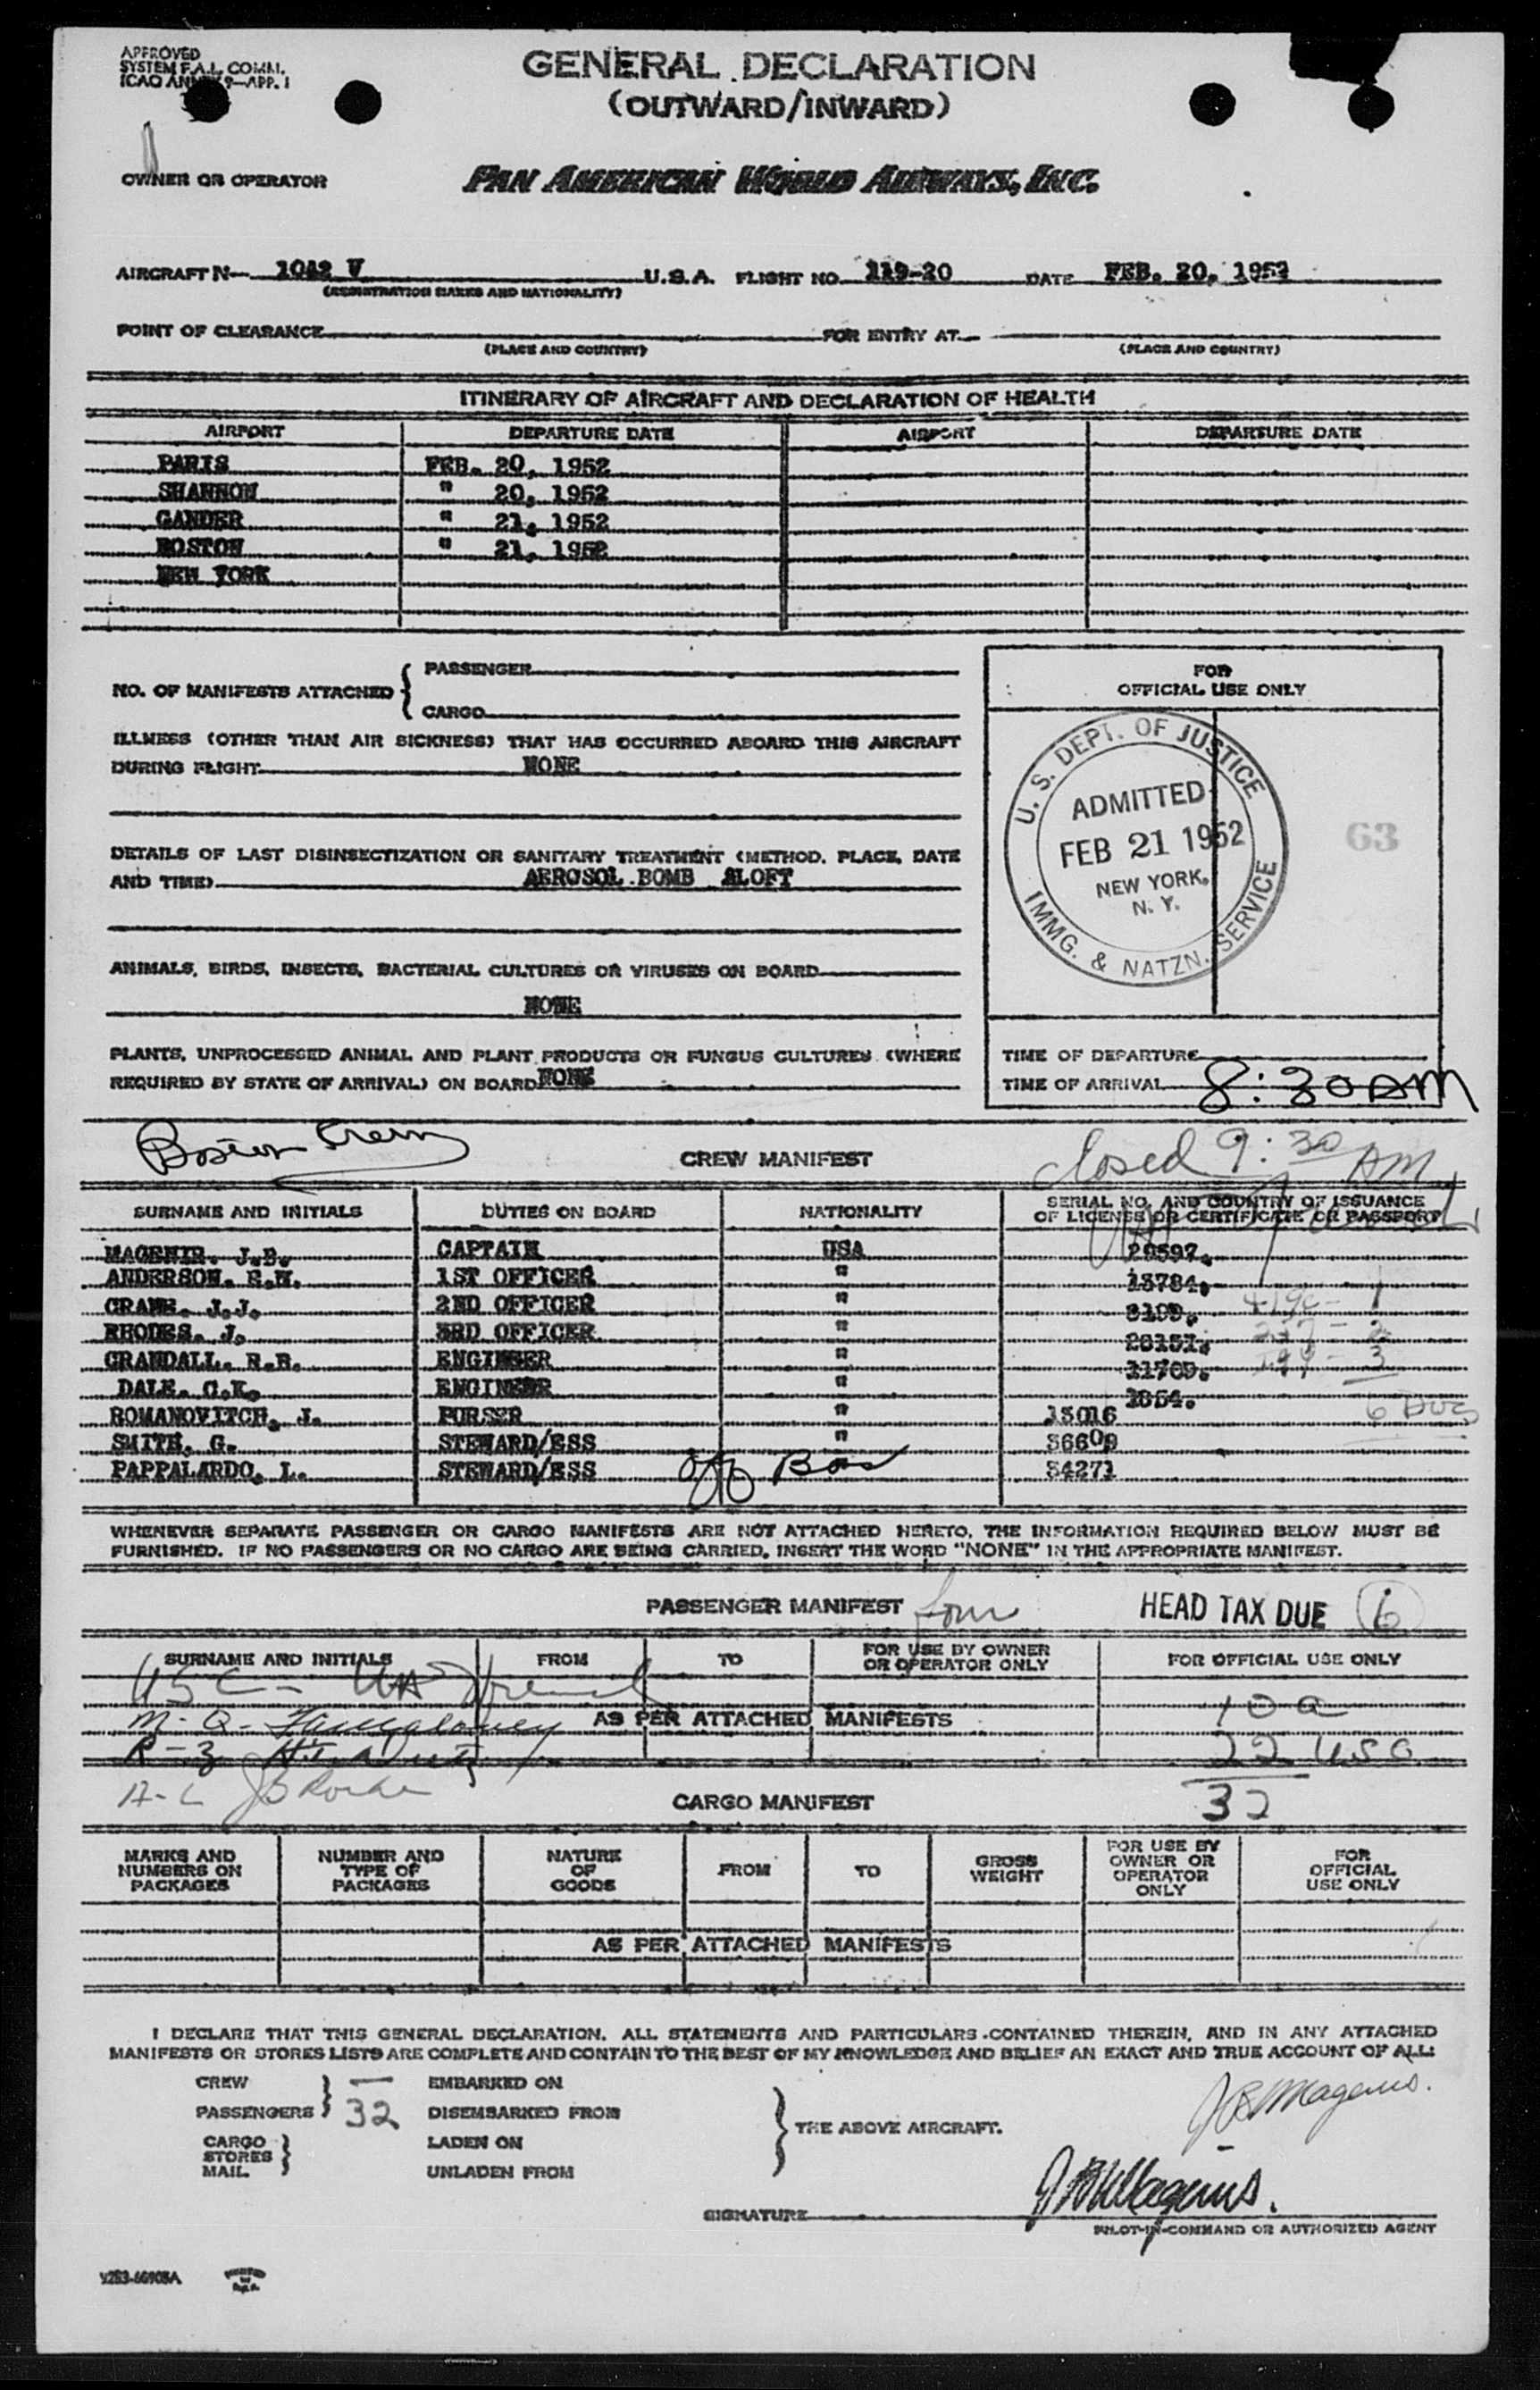 APPROVED
SYSTEM F.A.L. COMM.
ICAO ANNEX 9—APP. 1
GENERAL DECLARATION
(OUTWARD/INWARD)
OWNER OR OPERATOR
PAN AMERICAN WORLD AIRWAYS, INC.
AIRCRAFT N— 1042 V U.S.A. FLIGHT NO. 119-20 DATE FEB. 20, 1952
(REGISTRATION MARKS AND NATIONALITY)
POINT OF CLEARANCE FOR ENTRY AT
(PLACE AND COUNTRY) (PLACE AND COUNTRY)
ITINERARY OF AIRCRAFT AND DECLARATION OF HEALTH
AIRPORT DEPARTURE DATE AIRPORT DEPARTURE DATE
PARIS FEB. 20, 1952
SHANNON " 20, 1952
GANDER " 21, 1952
BOSTON " 21, 1952
NEW YORK
NO. OF MANIFESTS ATTACHED { PASSENGER
CARGO
ILLNESS (OTHER THAN AIR SICKNESS) THAT HAS OCCURRED ABOARD THIS AIRCRAFT
DURING FLIGHT NONE
DETAILS OF LAST DISINSECTIZATION OR SANITARY TREATMENT (METHOD, PLACE, DATE
AND TIME) AEROSOL BOMB ALOFT
ANIMALS, BIRDS, INSECTS, BACTERIAL CULTURES OR VIRUSES ON BOARD
NONE
PLANTS, UNPROCESSED ANIMAL AND PLANT PRODUCTS OR FUNGUS CULTURES (WHERE
REQUIRED BY STATE OF ARRIVAL) ON BOARD NONE
FOR
OFFICIAL USE ONLY
U. S. DEPT. OF JUSTICE
ADMITTED
FEB 21 1952
NEW YORK,
N. Y.
IMMG. & NATZN. SERVICE
63
TIME OF DEPARTURE
TIME OF ARRIVAL 8:30 AM
Boston Crew
CREW MANIFEST
Closed 9:30 AM
SURNAME AND INITIALS DUTIES ON BOARD NATIONALITY SERIAL NO. AND COUNTRY OF ISSUANCE
OF LICENSE OR CERTIFICATE OR PASSPORT
MAGENIS. J.B. CAPTAIN USA 20597.
ANDERSON. E.W. 1ST OFFICER " 13784.
CRANE. J.J. 2ND OFFICER " 3199.
RHODES. J. 3RD OFFICER " 20151.
CRANDALL. R.R. ENGINEER " 11709.
DALE. C.K. ENGINEER " 1054.
ROMANOVITCH. J. PURSER " 13016
SMITH. G. STEWARD/ESS " 36609
PAPPALARDO. L. STEWARD/ESS " 34271
off Bos
WHENEVER SEPARATE PASSENGER OR CARGO MANIFESTS ARE NOT ATTACHED HERETO, THE INFORMATION REQUIRED BELOW MUST BE
FURNISHED. IF NO PASSENGERS OR NO CARGO ARE BEING CARRIED, INSERT THE WORD "NONE" IN THE APPROPRIATE MANIFEST.
PASSENGER MANIFEST
HEAD TAX DUE 6
SURNAME AND INITIALS FROM TO FOR USE BY OWNER
OR OPERATOR ONLY FOR OFFICIAL USE ONLY
USC -
10 a
AS PER ATTACHED MANIFESTS
22 USC
32
CARGO MANIFEST
MARKS AND
NUMBERS ON
PACKAGES
NUMBER AND
TYPE OF
PACKAGES
NATURE
OF
GOODS
FROM
TO
GROSS
WEIGHT
FOR USE BY
OWNER OR
OPERATOR
ONLY
FOR
OFFICIAL
USE ONLY
AS PER ATTACHED MANIFESTS
I DECLARE THAT THIS GENERAL DECLARATION, ALL STATEMENTS AND PARTICULARS CONTAINED THEREIN, AND IN ANY ATTACHED
MANIFESTS OR STORES LISTS ARE COMPLETE AND CONTAIN TO THE BEST OF MY KNOWLEDGE AND BELIEF AN EXACT AND TRUE ACCOUNT OF ALL:
CREW — EMBARKED ON
PASSENGERS 32 DISEMBARKED FROM
CARGO LADEN ON
STORES
MAIL UNLADEN FROM
THE ABOVE AIRCRAFT.
JB Magenis.
SIGNATURE JB Magenis.
PILOT-IN-COMMAND OR AUTHORIZED AGENT